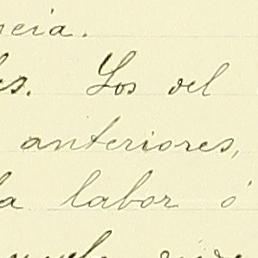 ncia.
es. Los del
anteriores,
la labor ó